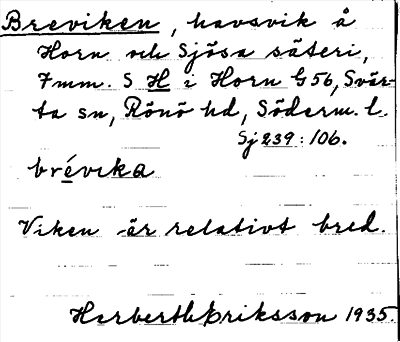 Breviken, havsvik å
Horn och Sjösa säteri,
7mm. S H i Horn G56, Svär-
ta sn, Rönö hd, Söderm. l.
Sj 239 : 106.
brévika
Viken är relativt bred.
Harberth Eriksson 1935.